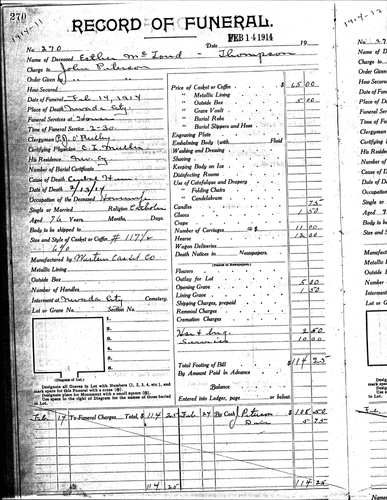 270
1914-11
RECORD OF FUNERAL.
FEB 14 1914
No. 270 Date 19
Name of Deceased Esther Mc Tond Thompson
Charge to John Peterson
Order Given by "
How Secured
Date of Funeral Feb 14, 1914
Place of Death Nevada City
Funeral Services at House
Time of Funeral Service 2-30
Clergyman P.J. O'Reilly
Certifying Physician C. I. Muller
His Residence Nev. Cy
Number of Burial Certificate
Cause of Death
Date of Death 2/13/14
Occupation of the Deceased Housewife
Single or Married Religion Catholic
Aged 76 Years, Months, Days
Body to be shipped to
Size and Style of Casket or Coffin # 117 1/2
6/0
Manufactured by Western Casket Co
Metallic Lining
Outside Box
Number of Handles
Interment at Nevada City Cemetery.
Lot or Grave No. Section No.
1.
2.
3.
4.
5.
6.
(Diagram of Lot.)
Designate all Graves in Lot with Numbers (1, 2, 3, 4, etc.), and
mark space for this Funeral with a cross (⊗).
Designate place for Monument with a small square (⊞).
Use space to the right of Diagram for the names of those buried
in Lot.
Price of Casket or Coffin $ 65 00
" Metallic Lining
" Outside Box 5 00
" Grave Vault
" Burial Robe
" Burial Slippers and Hose
Engraving Plate
Embalming Body (with Fluid
Washing and Dressing
Shaving
Keeping Body on Ice
Disinfecting Rooms
Use of Catafalque and Drapery
" Folding Chairs
" Candelabrum
Candles 75
Gloves 1 50
Crape
Number of Carriages @ $ 11 00
Hearse 12 00
Wagon Deliveries
Death Notices in Newspapers
(Names of Newspapers.)
Flowers
Outlay for Lot
Opening Grave 5 00
Lining Grave 1 50
Shipping Charges, prepaid
Removal Charges
Cremation Charges
2 50
Services 10 00
Total Footing of Bill $ 114 25
By Amount Paid in Advance
Balance
Entered into Ledger, page or below.
Feb 17 To Funeral Charges Total, $ 114 25 Feb 24 By Cash J Peterson $ 108 50
5 75
114 25 114 25
1914-12